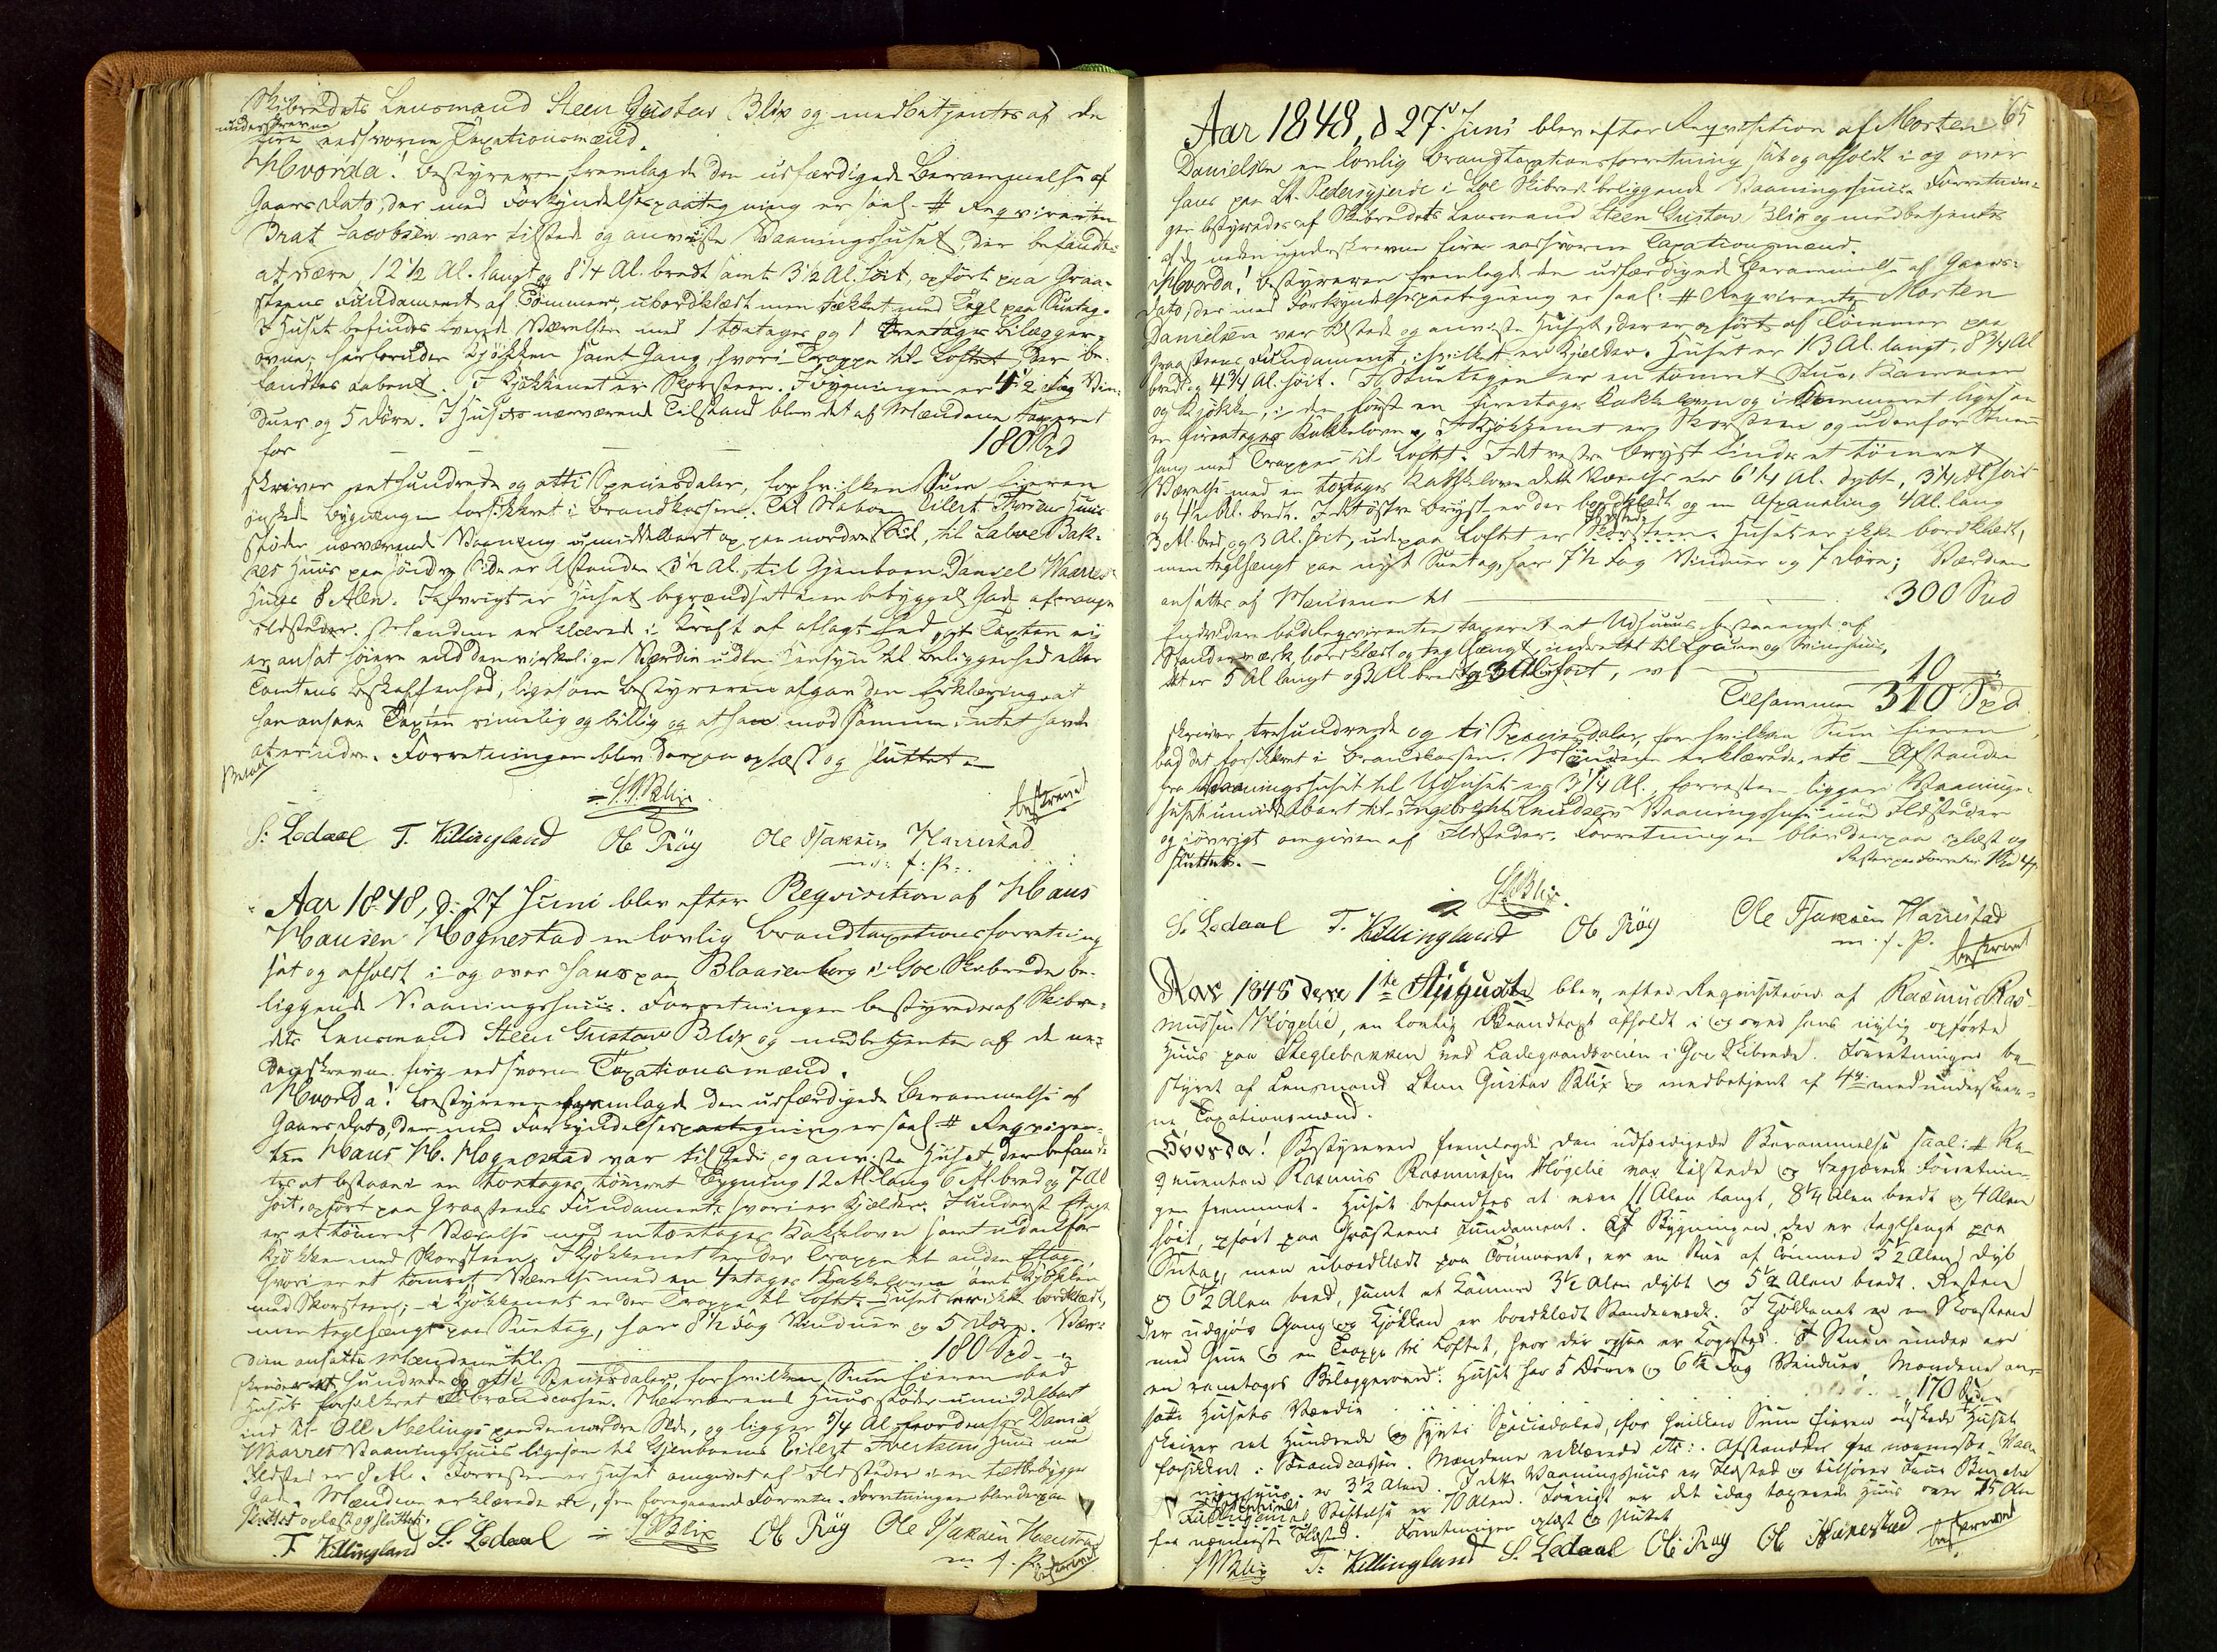 Skibredets Lensmand Steen Gustav Blix og medbetjentes af de
underskrevne
fire eedsvorne Taxationsmænd.
Hvorda! Bestyreren fremlagde den udfærdigede Berammelse af
Gaars Dato, der med Forkyndelsespaategning er saal. # Reqvirenten
Brat Jacobsen var tilstede og anviste Vaaningshuset, der befandtes
at være 12 1/2 Al. langt og 8 1/4 Al. bredt samt 3 1/2 Al. høit, opført paa Graa-
steens Fundament af Tømmer, ubordklædt men tækket med Tegl paa Sutag.
I Huset befindes tvende Værelser med 1 totages og 1 Bilægger-
ovne; herforuden Kjøkken samt Gang, hvori Trappe til Loftet, der be-
fandtes aabent. I Kjøkkenet er Skorsteen. I Bygningen er 4 1/2 Fag Vin-
duer og 5 Døre. I Husets nærværende Tilstand blev det af Mændene taxeret
for 180 Spd
skriver eethundrede og otti Speciesdaler, for hvilken Sum Eieren
ønskede Bygningen forsikkret i Brandkassen. Til Naboen Eilert Huus
støder nærværende Vaaning umiddelbart op paa nordre Side, til Bak-
kes Huus paa søndre Side er Afstanden 3 1/2 Al., til Gjenboen Daniel Waarres
Huus 8 Alen. Iøfvrigt er Huset begrændset i en bebygget Gade af mange
Ildsteder. Mændene erklærede i Kraft af aflagt Eed, at Taxten ei
er ansat høiere end den virkelige Værdie uden Hensyn til Beliggenhed eller
Tomtens Beskaffenhed, ligesom Bestyreren afgav den Erklæring, at
han ansaae Taxten rimelig og billig og at han imod samme Intet havde
at erindre. Forretningen blev derpaa oplæst og sluttet.
Blix
beskreved
S: Ledaal T. Killingland Ole Røy Ole Isaksen Harrestad
m. f. P.
Aar 1848, d: 27 Juni blev efter Reqvisition af Hans
Hansen Hognestad en lovlig Brandtaxationsforretning
sat og afholdt i og over hans paa Blaasenborg i Goe Skibrede be-
liggende Vaaningshuus. Forretningen bestyredes af Skibre-
dets Lensmand Steen Gustav Blix og medbetjentes af de un-
derskrevne fire eedsvorne Taxationsmænd.
Hvorda! Bestyreren fremlagde den udfærdigede Berammelse af
Gaars Dato, der med Forkyndelsespaategning er saal. # Reqviren-
ten Hans H. Hognestad var tilstede og anviste Huset, der befand-
tes at bestaae i en toetages tømret Bygning 12 Al. lang 6 Al. bred og 7 Al
høit, opført paa Graasteens Fundament, hvori er Kjælder. I underste Etage
er et tømret Værelse med en toetages Kakkelovn samt udenfor
Kjøkken med Skorsteen. I Kjøkkenet er der Trappe til anden Etage,
hvori er et tømret Værelse med en 4etages Kakkelovn samt Kjøkken
med Skorsteen; i Kjøkkenet er der Trappe til Loftet. Huset er ikke bordklædt,
men teglhængt paa Sutag, har 8 1/2 Fag Vinduer og 5 Døre. Vær-
dien ansatte Mændene til 180 Spd
skriver et hundrede og otti Speciesdaler, for hvilken Sum Eieren bad
Huset forsikkret i Brandcassen. Nærværende Huus støder umiddelbart
ind til Ole Melings paa den nordre Side, og ligger 3/4 Al. nordenfor Daniel
Waarres Vaaningshuus ligesom til Gjenboens Eilert Ivertsens Huus med
Ildsted er 8 Al. Forresten er Huset omgivet af Ildsteder i en tætbebygget
Gade. Mændene erklærede etc, som foregaaende Forretn. Forretningen blev derpaa
oplæst og sluttet.
T. Killingland S. Ledaal Blix Ole Røy Ole Isaksen Harrestad
m. f. P.
beskreved
65
Aar 1848, d 27 Juni blev efter Reqvisition af Morten
Danielsen en lovlig Brandtaxationsforretning sat og afholdt i og over
hans paa St. Pedersgjerde i Goe Skibrede beliggende Vaaningshuus. Forretnin-
gen bestyredes af Skibredets Lensmand Steen Gustav Blix og medbetjentes
af de nedenunderskrevne fire eedsvorne Taxationsmænd.
Hvorda! Bestyreren fremlagde den udfærdigede Berammelse af Gaars-
Dato, der med Forkyndelsespaategning er saal: # Reqvirenten Morten
Danielsen var tilstede og anviste Huset, der er opført af Tømmer paa
Graasteens Fundament, i hvilket er Kjælder. Huset er 13 Al. langt, 8 3/4 Al
bredt og 4 3/4 Al. høit. I Stueetagen er en tømret Stue, Kammer
og Kjøkken, i den første en firetages Kakkelovn og i Kammeret ligesaa
en firetages Kakkelovn. I Kjøkkenet er Skorsteen og udenfor Stuen
Gang med Trappe til Loftet. I det vestre Bryst findes et tømret
Værelse med en totages Kakkelovn dette Værelse er 6 1/4 Al. dybt, 3 1/4 Al høit
og 4 1/2 Al. bredt. I det østre Bryst er der bordklædt og en Afpaneling 4 Al. lang
3 Al. bred og 3 Al. høit, udepaa Loftet er Ildsted. Huset er ikke bordklædt,
men teglhængt paa nyt Sutag, har 7 1/2 Fag Vinduer og 7 Døre; Værdien
ansattes af Mændene til 300 Spd
Endvidere bad Reqvirenten taxeret et Udhuus bestaaende af
Standerværk, bordklædt og teglhængt, indrettet til Locum og Svinehuus,
det er 5 Al langt og 3 Al bredt og 3 Al. høit, 10
Tilsammen 310 Spd
skriver trehundrede og ti Speciesdaler, for hvilken Sum Eieren
bad det forsikkret i Brandkassen. Mændene erklærede, etc Afstanden
fra Vaaningshuset til Udhuset er 3 1/4 Al., forresten ligger Vaanings-
huset umiddelbart til Ingebrigt Knudsens Vaaningshuus med Ildsteder
og iøvrigt omgiven af Ildsteder. Forretningen blev derpaa oplæst og
sluttet.
Blix.
S. Ledaal T. Killingland Ole Røy Ole Isaksen Harrestad
m. f. P. beskrevet
Aar 1848 den 1te August blev, efter Requisition af Rasmus Ras-
mussen Høgelie, en lovlig Brandtaxt afholdt i og over hans nylig opførte
Huus paa Steglebakken ved Ladegaardsveien i Goe Skibrede. Forretningen be-
styret af Lensmand Steen Gustav Blix og medbetjent af 4re medunderskrev-
ne Taxationsmænd.
Hvorda! Bestyreren fremlagde den udfærdigede Berammelse saal: # Re-
quirenten Rasmus Rasmussen Høgelie var tilstede og begjærede Forretnin-
gen fremmet. Huset befandtes at være 11 Alen langt, 8 1/4 Alen bredt og 4 Alen
høit, opført paa Graasteens Fundament. I Bygningen, der er teglhængt paa
Sutag, men ubordklædt paa Tømmeret, er en Stue af Tømmer 5 1/2 Alen dyb
og 6 1/2 Alen bred, samt et Kammer 3 1/2 Alen dybt og 5 1/2 Alen bredt. Resten
der udgjør Gang og Kjøkken er bordklædt Standerværk. I Kjøkkenet er en Skorsteen
med Gruue og en Trappe til Loftet, hvor der ogsaa er Kogested. I Stuen findes
en eenetages Bilæggerovn. Huset har 5 Døre og 6 1/2 Fag Vinduer. Mændene an-
satte Husets Værdie 170 Spd
skriver eet Hundrede og Sytti Speciedaler, for hvilken Sum Eieren ønskede Huset
forsikkret i Brandcassen. Mændene erklærede etc: Afstanden fra nærmeste Vaa-
ningshuus er 3 1/2 Alen. I dette Vaaningshuus er Ildsted og tilhører
Stiftelse er 70 Alen. Forøvrigt er det idag taxerede Huus over 75 Alen
fra nærmeste Ildsted. Forretningen oplæst og sluttet
Blix T. Killingland S. Ledaal Ole Røy Ole Harrestad beskrevet